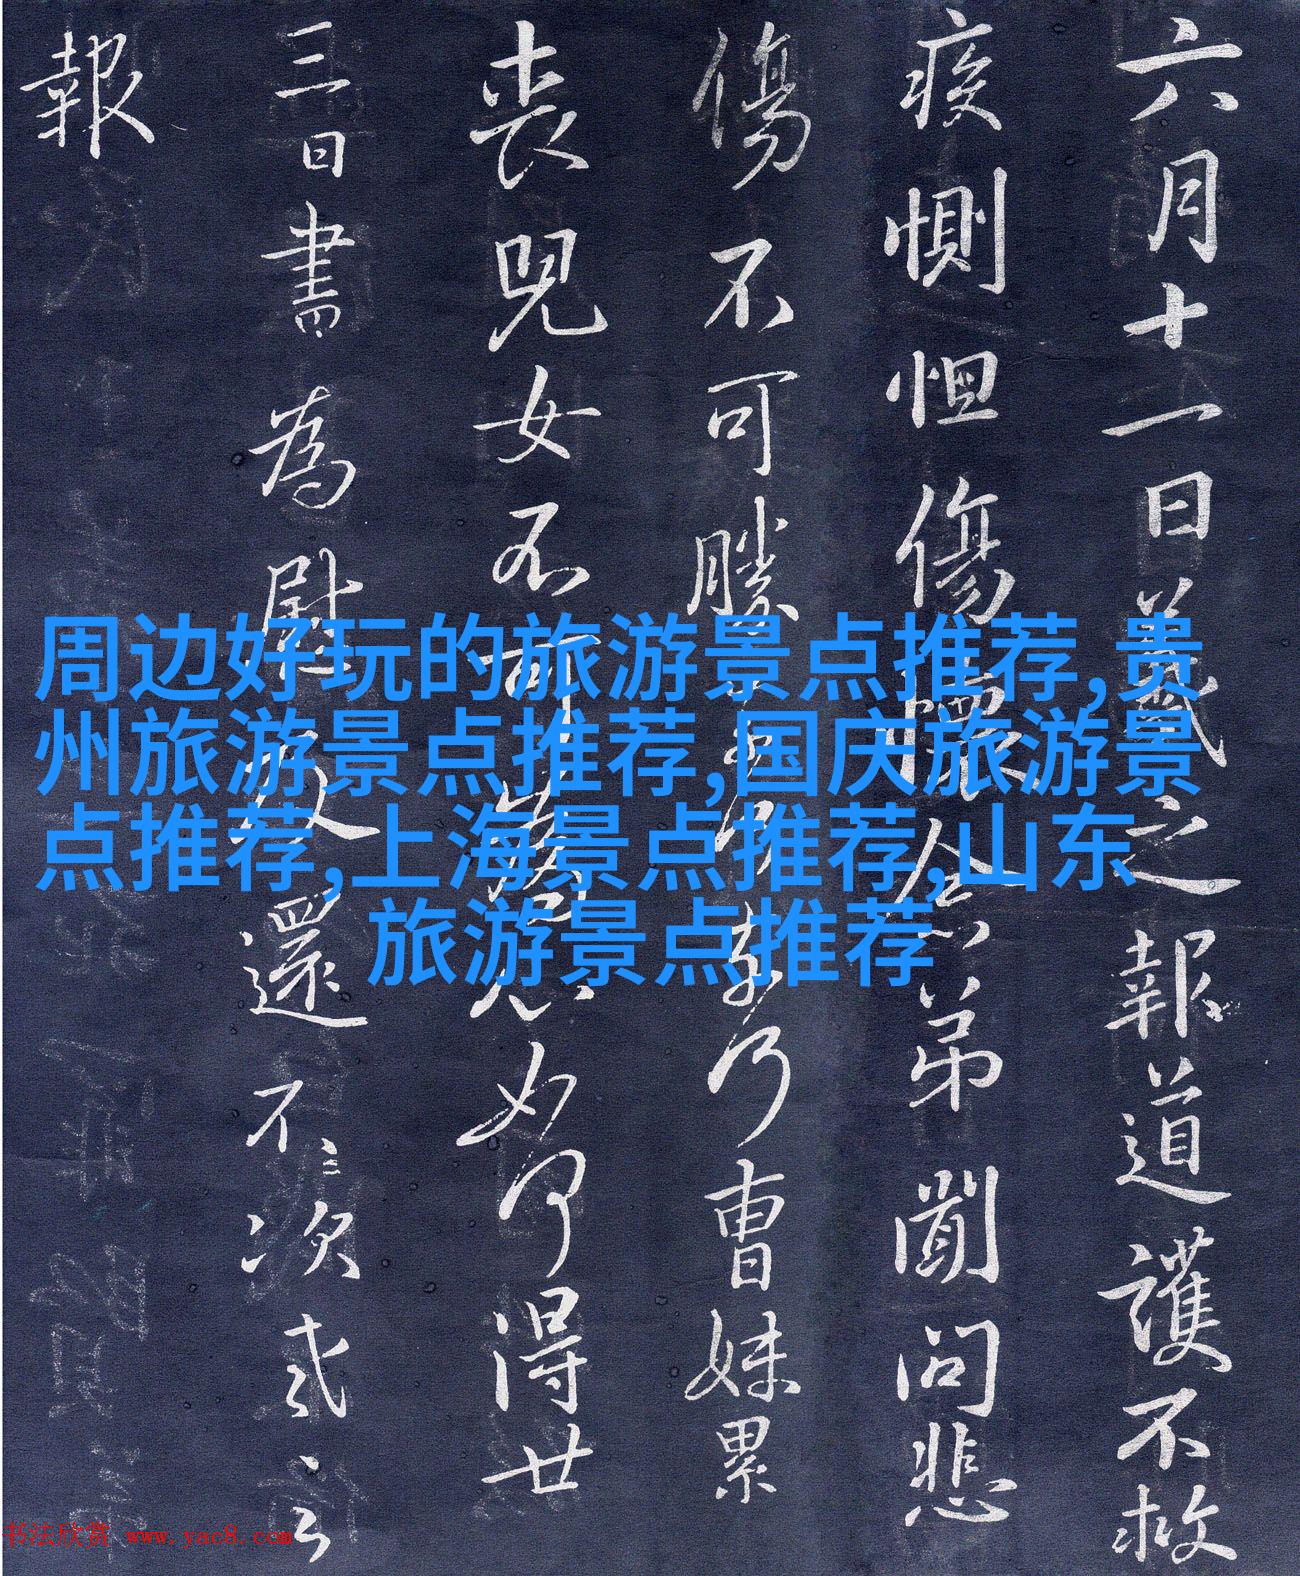 六月十一日羲之報道護不救
疾惻怛傷懷念弟聞問悲
傷不可勝奈乃曹妹累
喪兒女不可為心如何得廿
三日書為慰還不次
報
周边好玩的旅游景点推荐,贵
州旅游景点推荐,国庆旅游景
点推荐,上海景点推荐,山东
旅游景点推荐
书法欣赏 www.yac8.com